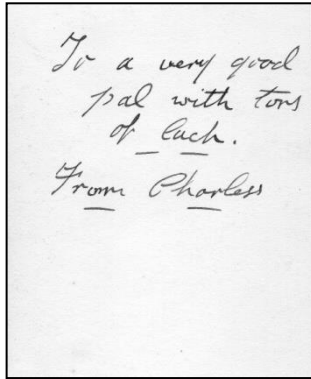 To a very good
pal with tons
of luck.
From Charless